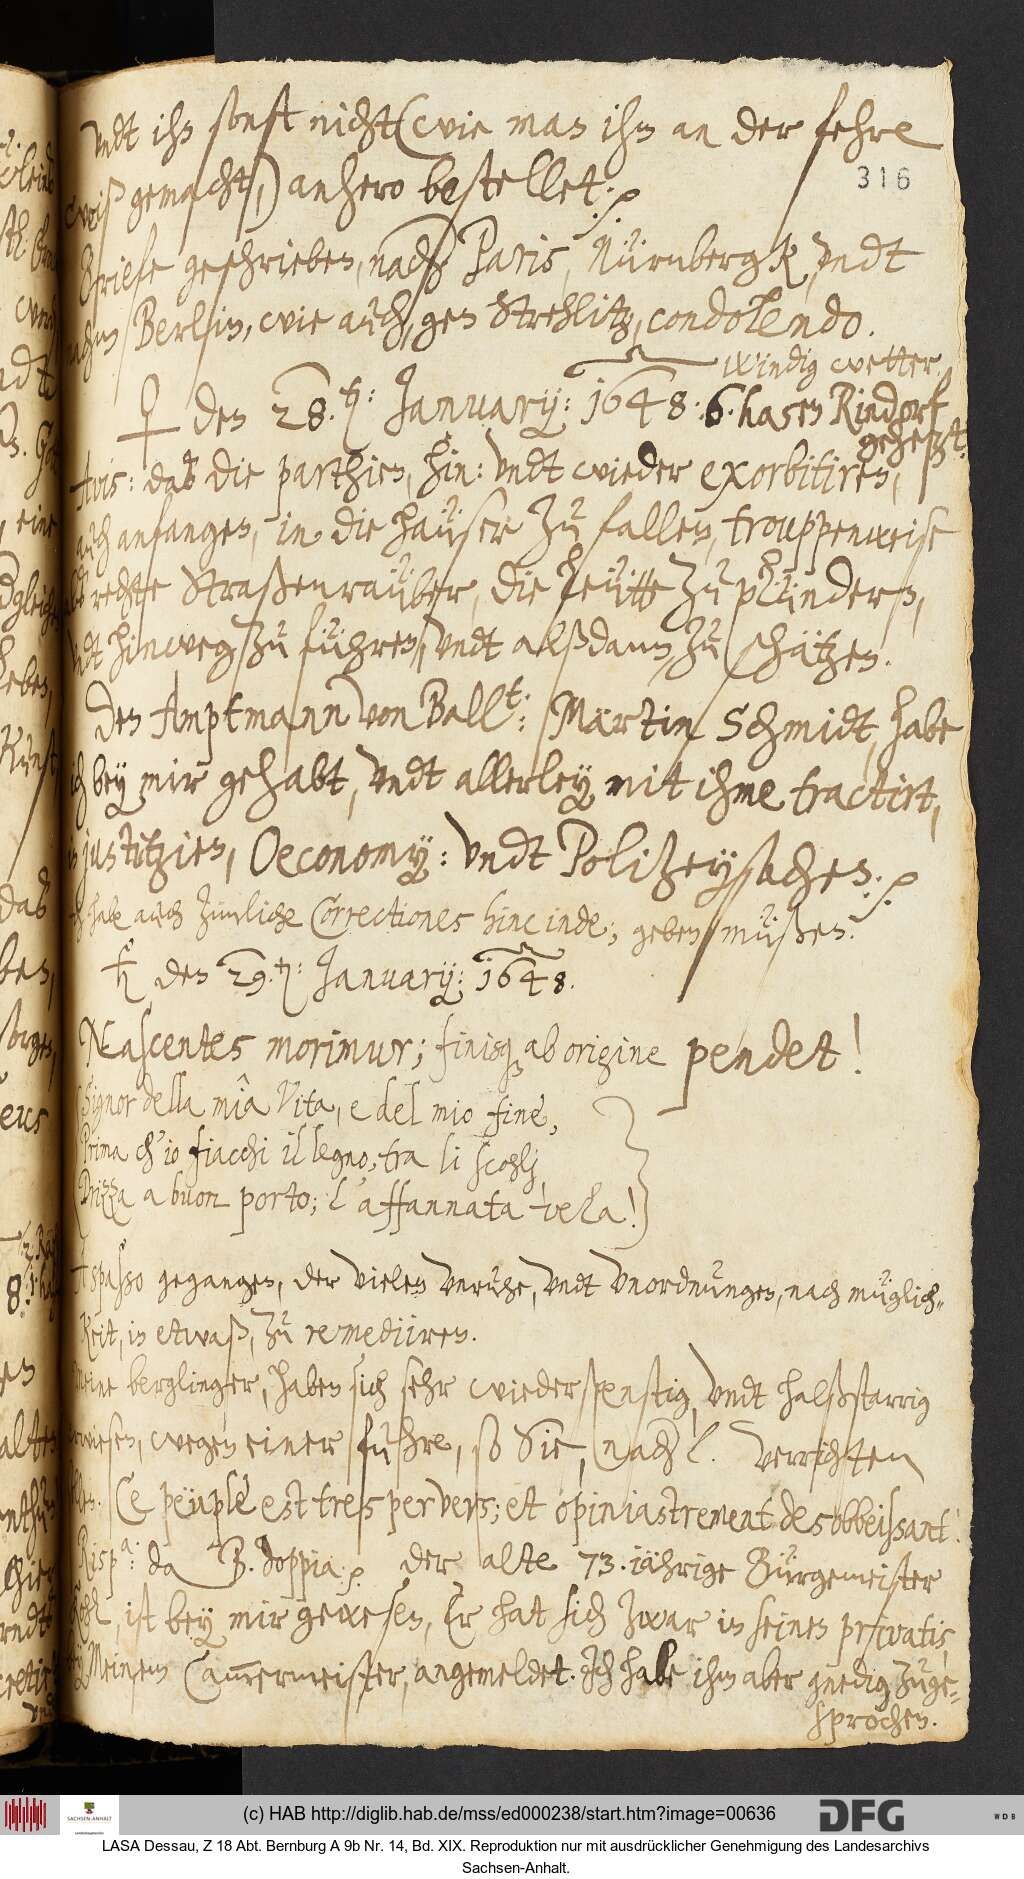 undt ihn sonst nicht (wie man ihn an der fehre
316
weiß gemacht,) anhero bestellet. ꝑ.
Briefe geschrieben, nach Paris, Nürnbergk, undt
nacher Berlin, wie auch, gen Strehlitz, condolendo.
windig wetter.
♀ den 28.ten: January: 1648. 6. hasen Rindorf
gehetzt.
Avis: das die parthien, hin: undt wieder exorbitiren,
auch anfangen, in die häuser zu fallen, trouppenweise
als rechte Straßenräuber, die Leutte zu plündern,
undt hinweg zu führen, undt alßdann, zu schätzen.
Den Amptmann von Ballt: Märtin Schmidt, habe
ich bey mir gehabt, undt allerley mit ihme tractirt,
in justitzien, Oeconomy: undt Polizeysachen. ꝑ.
Ich habe auch zimliche Correctiones hinc inde, geben müßen.
♄ den 29.ten: January: 1648.
Nascentes morimur; finisq. ab origine pendet!
Signor della mia Vita, e del mio fine,
Prima ch'io fiacchi il legno, tra li scoglj
Drizza a buon porto; l'affannata vela!
A spasso gegangen, der vielen unruhe, undt unordnungen, nach müglich-
keit, in etwaß, zu remediiren.
Meine berglinger, haben sich sehr wiederspenstig, undt halßstarrig
erwiesen, wegen einer fuhre, so Sie, nach L. verrichten
sollen. Ce peuple est tres pervers; et opiniastrement desobbeissant!
Rispa: da B. doppia. ꝑ. Der alte 73. iährige Bürgemeister
, ist bey mir gewesen, Er hat sich zwar in seinen privatis,
bey Meinem Cammermeister, angemeldet. Ich habe ihm aber gnedig zuge-
sprochen.
(c) HAB http://diglib.hab.de/mss/ed000238/start.htm?image=00636
SACHSEN-ANHALT
DFG
WDB
LASA Dessau, Z 18 Abt. Bernburg A 9b Nr. 14, Bd. XIX. Reproduktion nur mit ausdrücklicher Genehmigung des Landesarchivs
Sachsen-Anhalt.